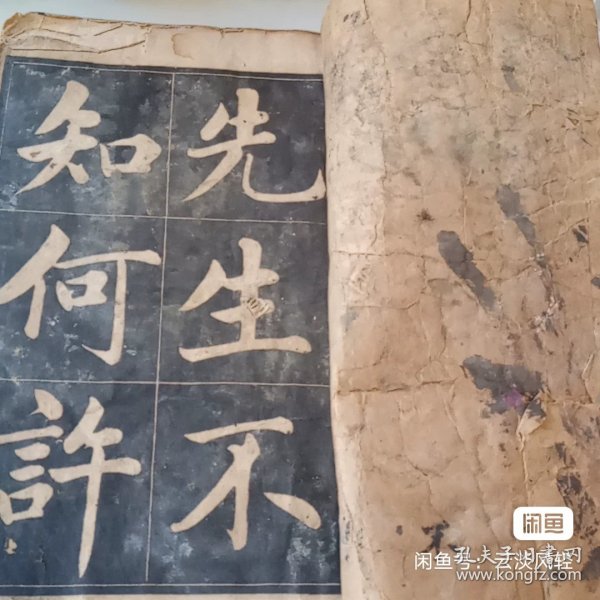 先生不
知何許
闲鱼
闲鱼号：云淡风轻
孔夫子旧书网
www.kongfz.com